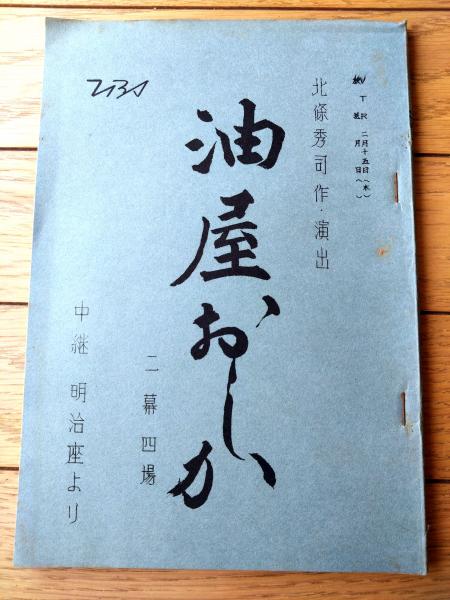 二月十五日(水)
月 日( )
北條秀司作・演出
油屋おしか
二幕四場
中継 明治座より